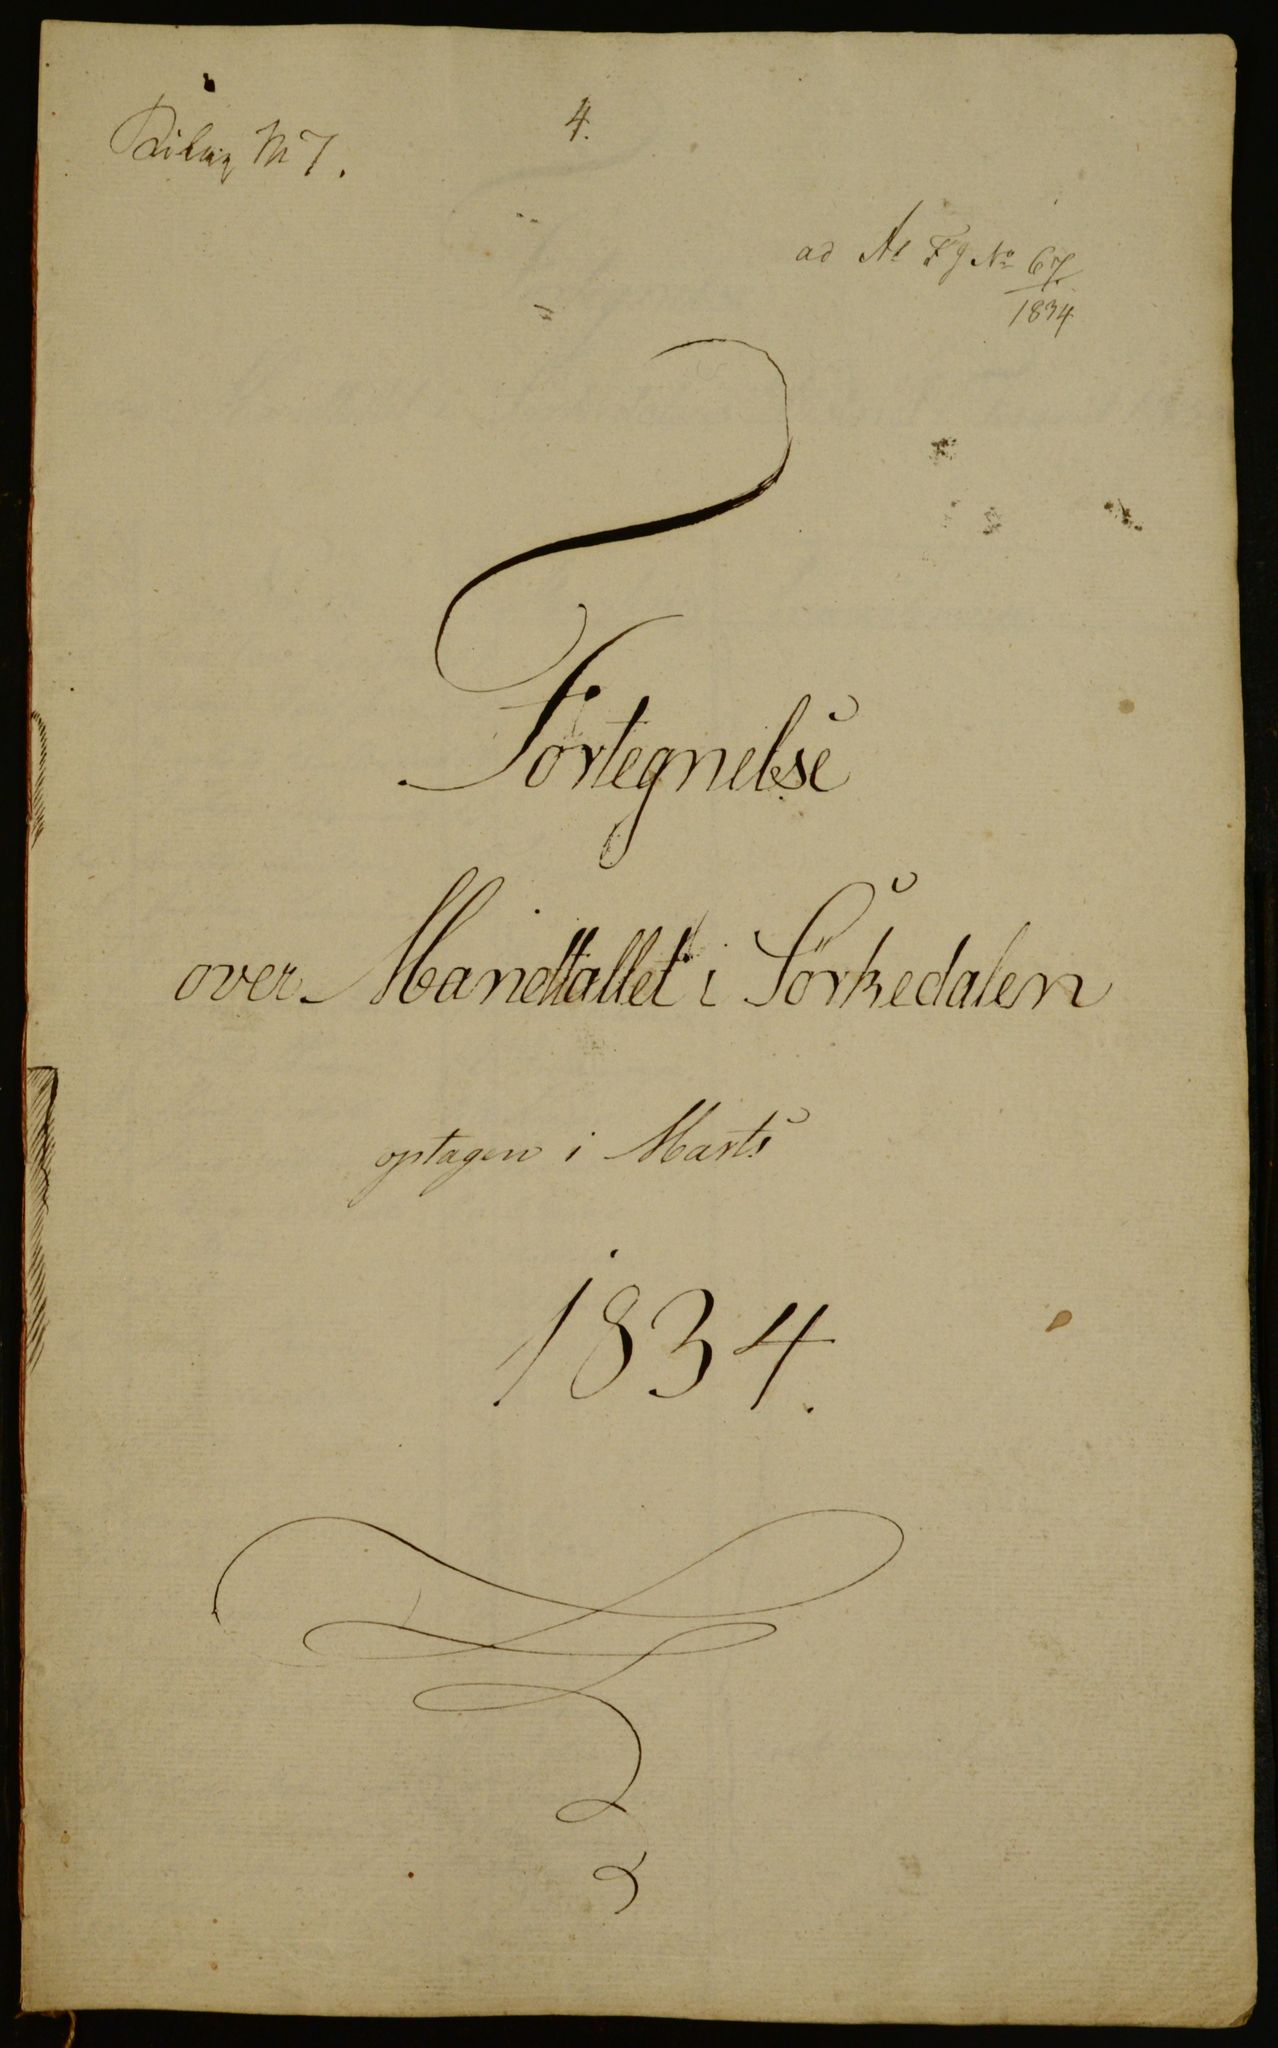 Bilag No 7.
4.
ad No 67
1834
Fortegnelse
over Mandtallet i Sørkedalen
optagen i Marts
1834.